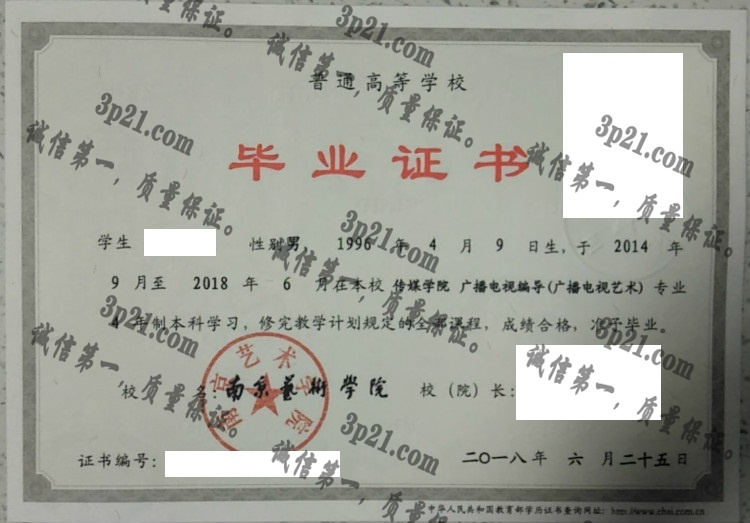 普通高等学校
毕业证书
学生 性别男, 1996 年 4 月 9 日生, 于 2014 年
9 月至 2018 年 6 月在本校 传媒学院 广播电视编导(广播电视艺术) 专业
4 年制本科学习, 修完教学计划规定的全部课程, 成绩合格, 准予毕业.
校 名: 南京藝術學院 校 (院) 长:
南京艺术学院
证书编号: 二〇一八年 六 月 二十五日
中华人民共和国教育部学历证书查询网址: http://www.chsi.com.cn
3p21.com
诚信第一, 质量保证。
3p21.com
诚信第一, 质量保证。
3p21.com
诚信第一, 质量保证。
3p21.com
诚信第一, 质量保证。
3p21.com
诚信第一, 质量保证。
3p21.com
诚信第一, 质量保证。
3p21.com
诚信第一, 质量保证。